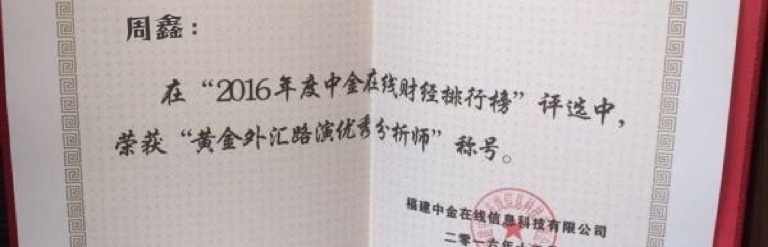 周鑫：
在“2016年度中金在线财经排行榜”评选中，
荣获“黄金外汇路演优秀分析师”称号。
福建中金在线信息科技有限公司
二零一六年十